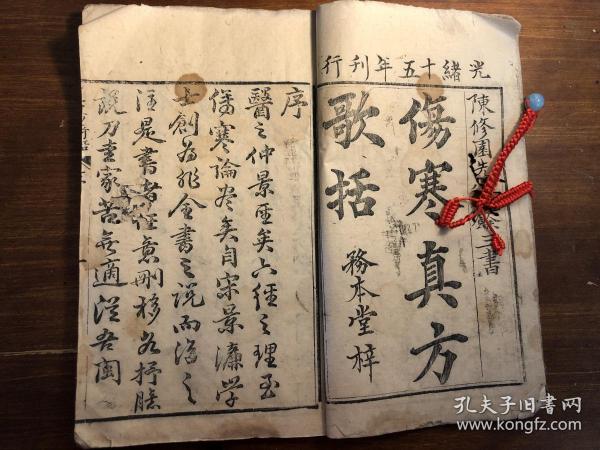 光緒十五年刊行
陳修園先 三書
傷寒真方
歌括
務本堂梓
序
醫之仲景聖矣六經之理至
傷寒論尽矣自宋景濂学
士創為非全書之說而後之
注是書者任意刪移各抒臆
說刀圭家苦無適從吾閩
孔夫子旧书网
www.kongfz.com